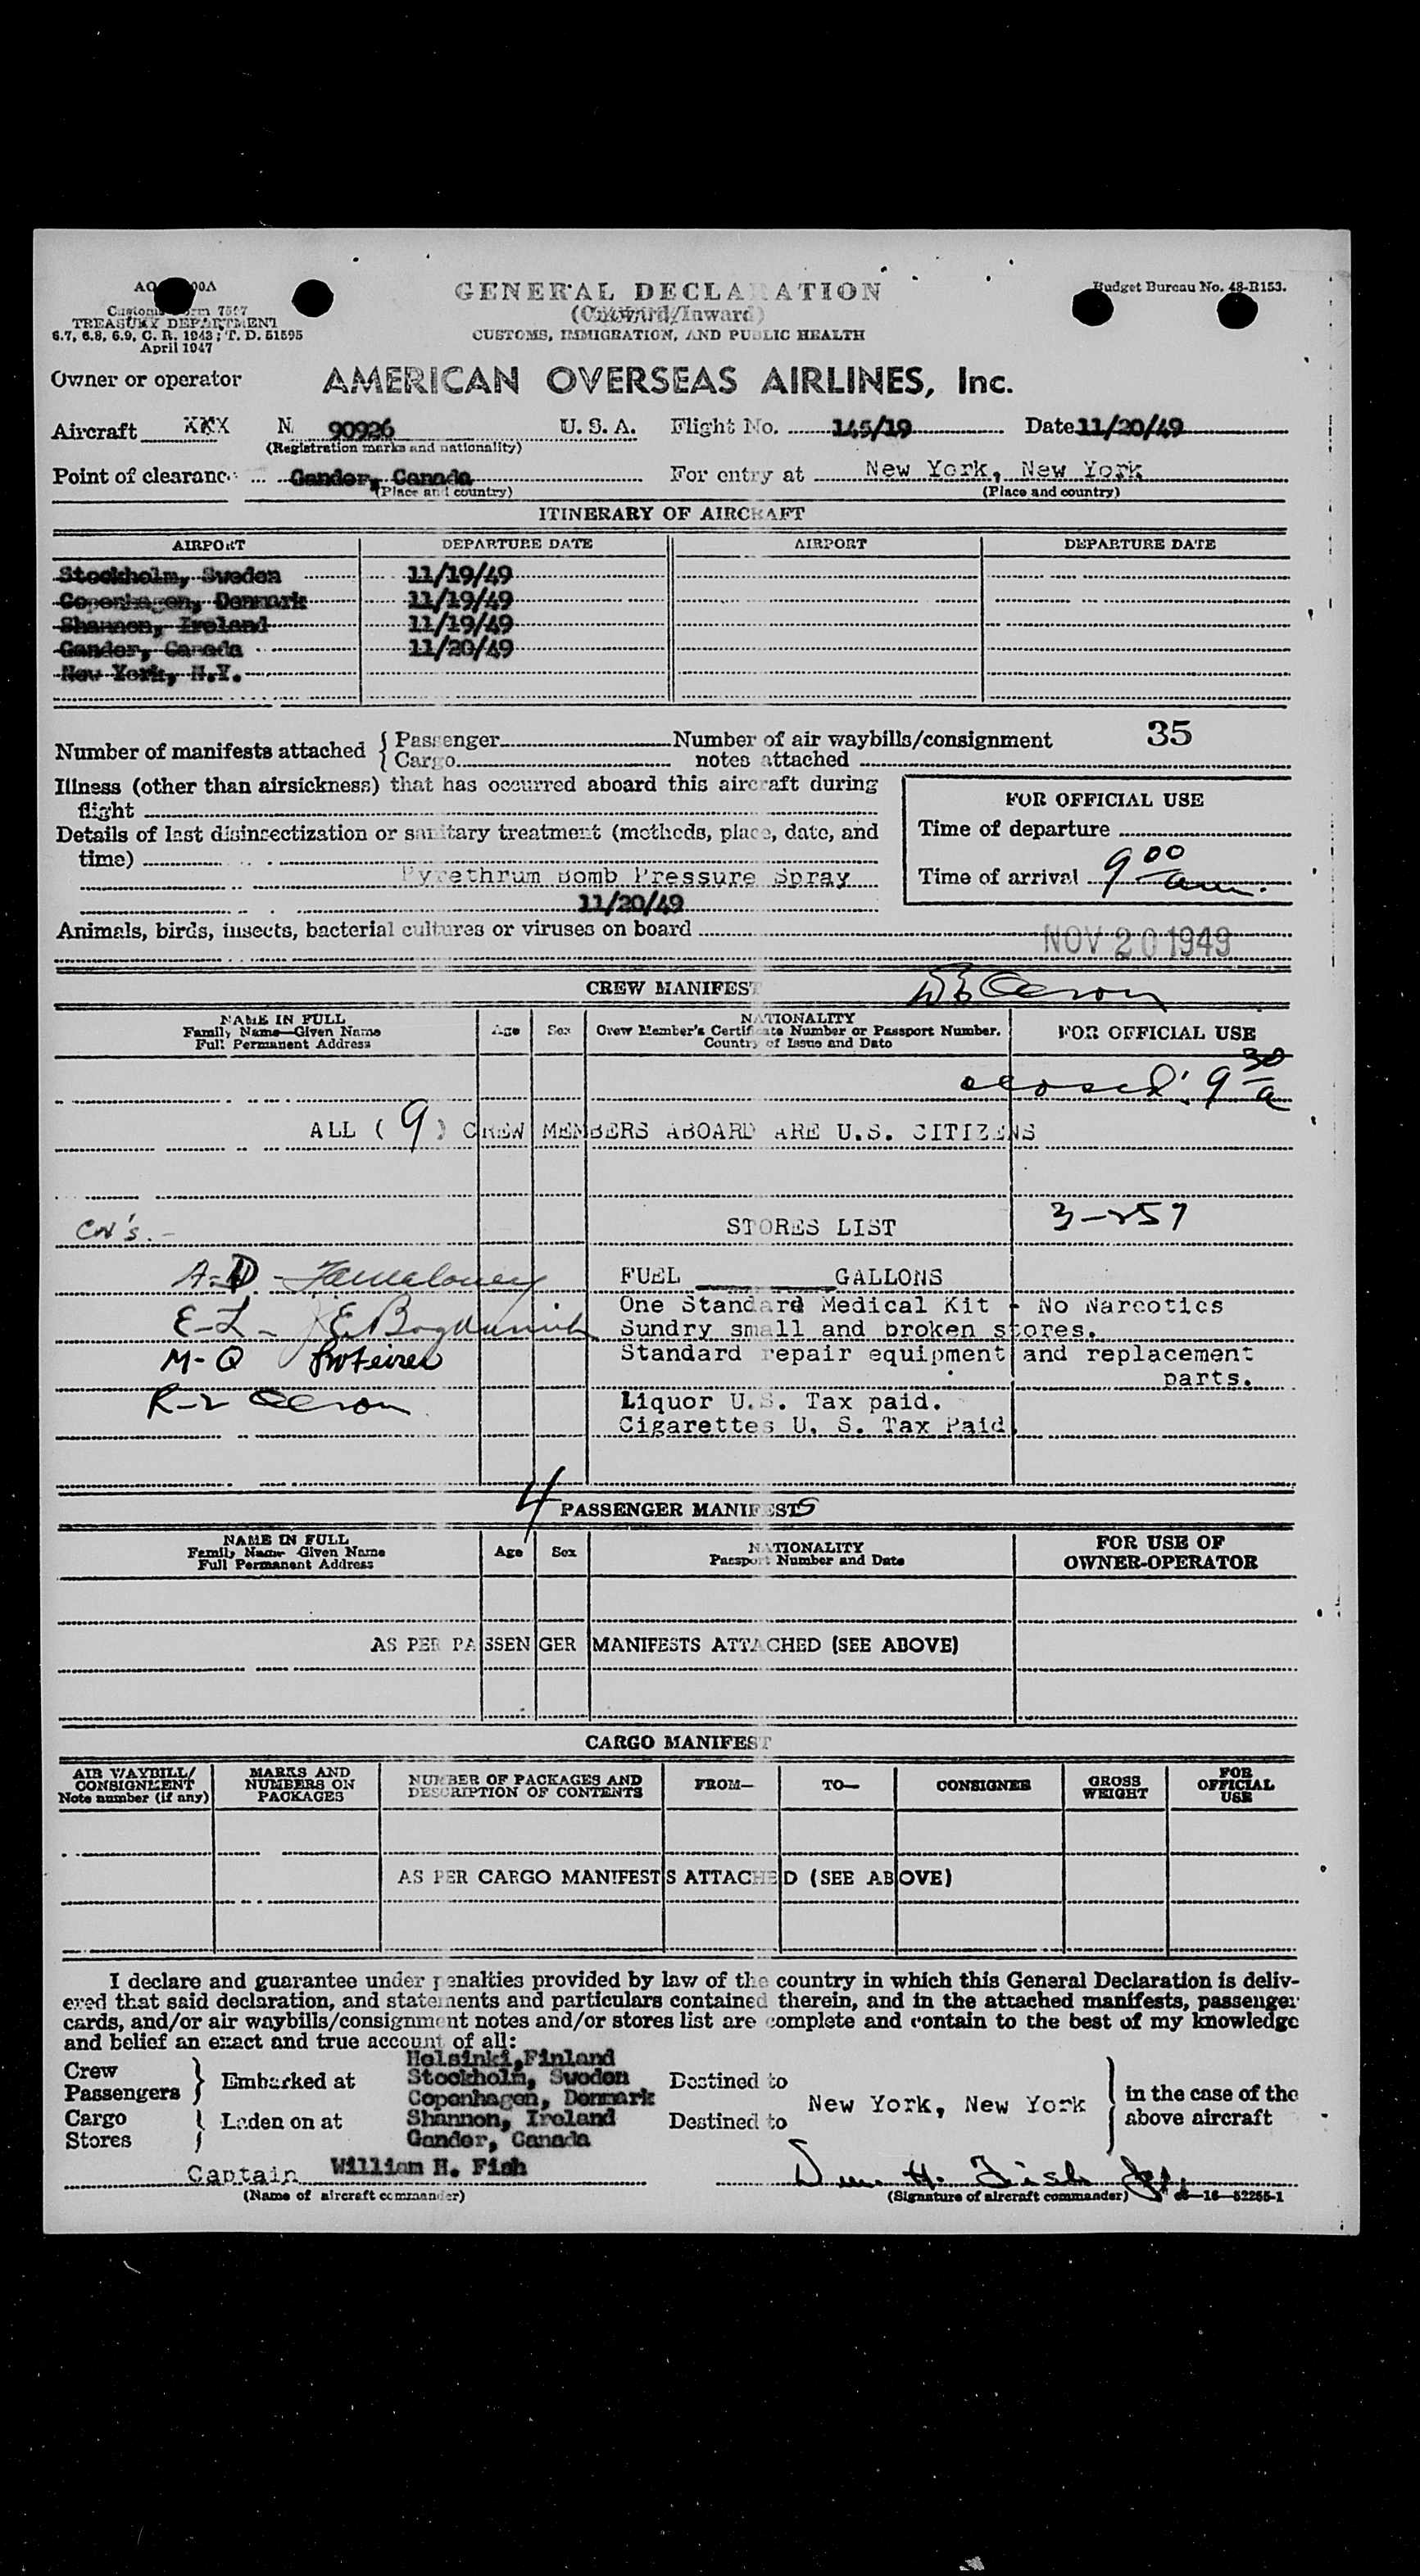 GENERAL DECLARATION
(Outward/Inward)
CUSTOMS, IMMIGRATION, AND PUBLIC HEALTH
Budget Bureau No. 48-R153.
Customs Form 7507
TREASURY DEPARTMENT
6.7, 6.8, 6.9, C. R. 1943; T. D. 51595
April 1947
Owner or operator AMERICAN OVERSEAS AIRLINES, Inc.
Aircraft XXX N 90926 U. S. A. Flight No. 145/19 Date 11/20/49
(Registration marks and nationality)
Point of clearance Gander, Canada For entry at New York, New York
(Place and country) (Place and country)
ITINERARY OF AIRCRAFT
AIRPORT DEPARTURE DATE AIRPORT DEPARTURE DATE
Stockholm, Sweden 11/19/49
Copenhagen, Denmark 11/19/49
Shannon, Ireland 11/19/49
Gander, Canada 11/20/49
New York, N.Y.
Number of manifests attached { Passenger Number of air waybills/consignment 35
Cargo notes attached
Illness (other than airsickness) that has occurred aboard this aircraft during
flight
FOR OFFICIAL USE
Details of last disinsectization or sanitary treatment (methods, place, date, and
time)
Time of departure
Pyrethrum Bomb Pressure Spray
Time of arrival 9 00 am.
11/20/49
Animals, birds, insects, bacterial cultures or viruses on board
NOV 20 1949
CREW MANIFEST
NAME IN FULL
Family Name—Given Name
Full Permanent Address
Age Sex
NATIONALITY
Crew Member's Certificate Number or Passport Number.
Country of Issue and Date
FOR OFFICIAL USE
closed: 9 30 a
ALL ( 9 ) CREW MEMBERS ABOARD ARE U.S. CITIZENS
STORES LIST 3-257
FUEL GALLONS
A-D -
One Standard Medical Kit - No Narcotics
E-L -
Sundry small and broken stores.
M-Q
Standard repair equipment and replacement
parts.
Liquor U.S. Tax paid.
Cigarettes U. S. Tax Paid.
4 PASSENGER MANIFESTS
NAME IN FULL
Family Name Given Name
Full Permanent Address
Age Sex
NATIONALITY
Passport Number and Date
FOR USE OF
OWNER-OPERATOR
AS PER PASSENGER MANIFESTS ATTACHED (SEE ABOVE)
CARGO MANIFEST
AIR WAYBILL/
CONSIGNMENT
Note number (if any)
MARKS AND
NUMBERS ON
PACKAGES
NUMBER OF PACKAGES AND
DESCRIPTION OF CONTENTS
FROM— TO— CONSIGNEE
GROSS
WEIGHT
FOR
OFFICIAL
USE
AS PER CARGO MANIFESTS ATTACHED (SEE ABOVE)
I declare and guarantee under penalties provided by law of the country in which this General Declaration is deliv-
ered that said declaration, and statements and particulars contained therein, and in the attached manifests, passenger
cards, and/or air waybills/consignment notes and/or stores list are complete and contain to the best of my knowledge
and belief an exact and true account of all:
Crew
Passengers } Embarked at
Cargo
Stores } Laden on at
Helsinki, Finland
Stockholm, Sweden
Copenhagen, Denmark
Shannon, Ireland
Gander, Canada
Destined to
Destined to
New York, New York
} in the case of the
above aircraft
Captain William H. Fish
Wm. H. Fish Jr.
(Name of aircraft commander) (Signature of aircraft commander) 16—52255-1